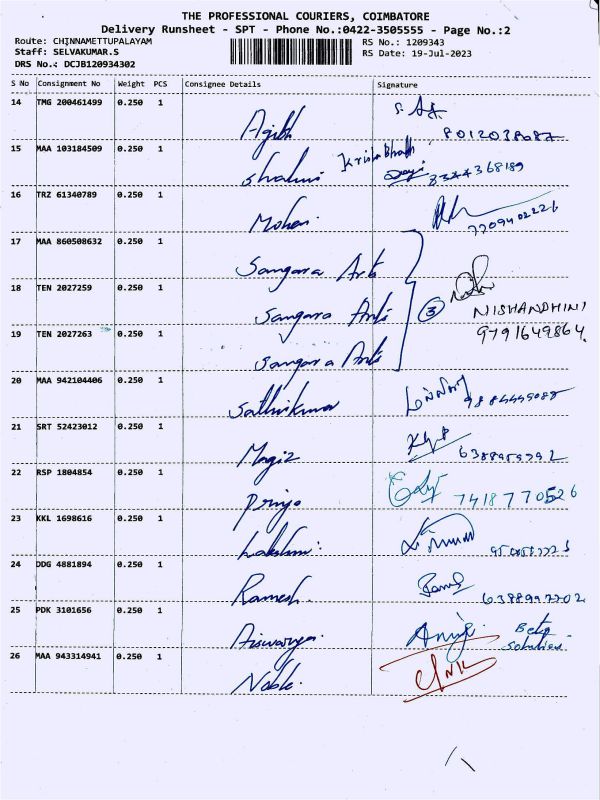 THE PROFESSIONAL COURIERS, COIMBATORE
Delivery Runsheet - SPT - Phone No.:0422-3505555 - Page No.:2
Route: CHINNAMETTUPALAYAM
RS No.: 1209343
Staff: SELVAKUMAR.S
RS Date: 19-Jul-2023
DRS No.: DCJB120934302
S No Consignment No Weight PCS Consignee Details Signature
14 TMG 200461499 0.250 1
15 MAA 103184509 0.250 1 Shalini
8344368189
16 TRZ 61340789 0.250 1 Mohan.
7709402226
17 MAA 860508632 0.250 1 Sangara Arts
18 TEN 2027259 0.250 1 Sangara Arts 3
NISHANDHINI
19 TEN 2027263 0.250 1 Sangara Arts
9791649864.
20 MAA 942104406 0.250 1 Sathikumar
21 SRT 52423012 0.250 1 Magiz
22 RSP 1804854 0.250 1 Priya
7418770526
23 KKL 1698616 0.250 1 Lakshmi
24 DDG 4881894 0.250 1 Ramesh.
6388997702
25 PDK 3101656 0.250 1 Aiswarya.
26 MAA 943314941 0.250 1 Noble.